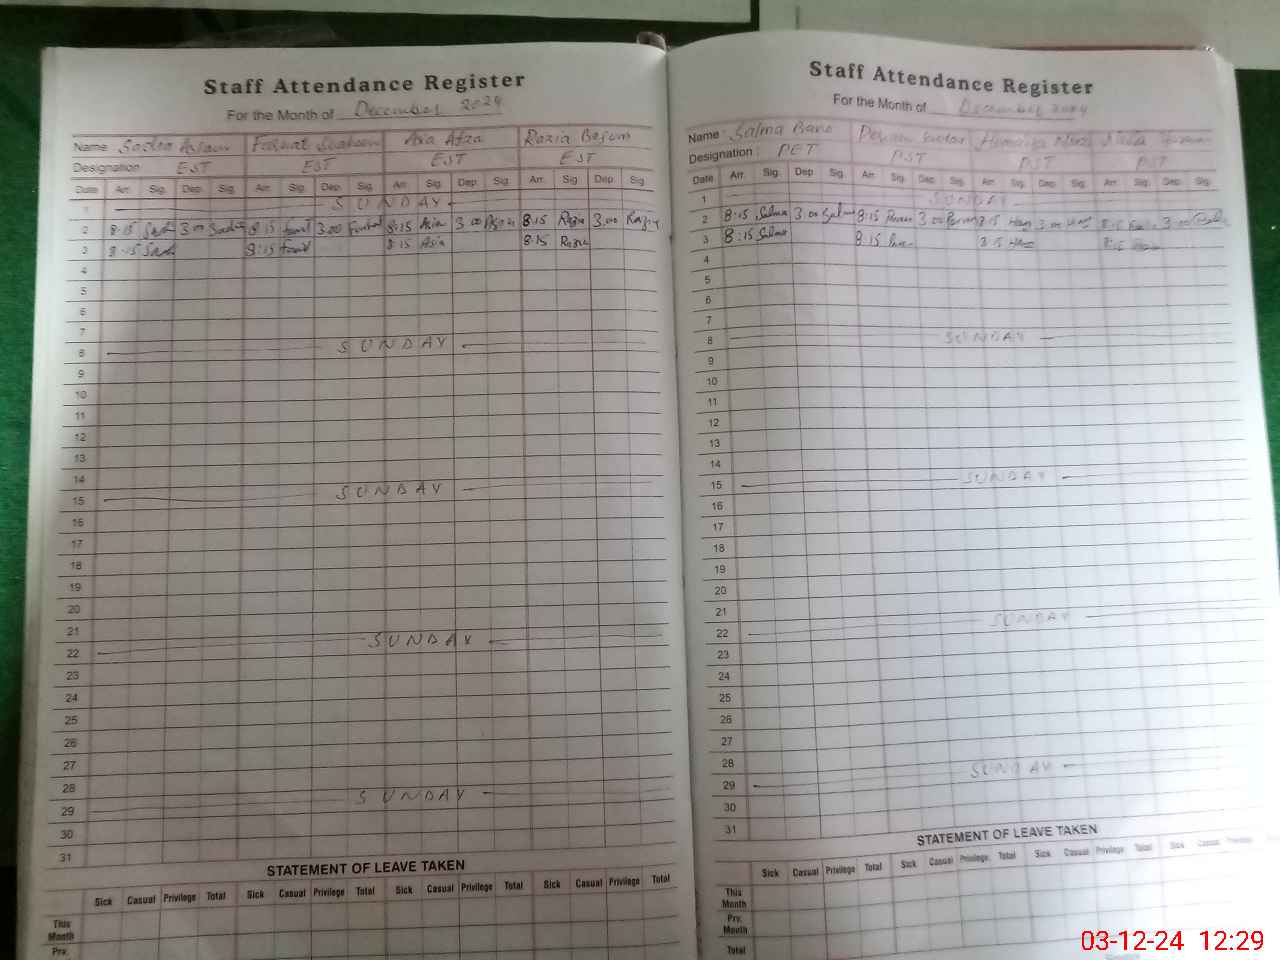 Staff Attendance Register
For the Month of December 2024
Name Sadia Aslam Farhat Shaheen Asia Afza Razia Begum
Designation EST EST EST EST
Date Arr. Sig. Dep. Sig. Arr. Sig. Dep. Sig. Arr. Sig. Dep. Sig. Arr. Sig. Dep. Sig.
1 SUNDAY
2 8·15 3·00 8·15 3.00 8·15 Asia 3.00 8·15 Razia 3.00 Razia
3 8·15 8:15 8·15 Asia 8·15 Razia
4
5
6
7
8 SUNDAY
9
10
11
12
13
14
15 SUNDAY
16
17
18
19
20
21
22 SUNDAY
23
24
25
26
27
28
29 SUNDAY
30
31
STATEMENT OF LEAVE TAKEN
Sick Casual Privilege Total Sick Casual Privilege Total Sick Casual Privilege Total Sick Casual Privilege Total
This Month
Prv.
Staff Attendance Register
For the Month of December 2024
Name : Salma Bano
Designation : PET PST PST PST
Date Arr. Sig. Dep. Sig. Arr. Sig. Dep. Sig. Arr. Sig. Dep. Sig. Arr. Sig. Dep. Sig.
1 SUNDAY
2 8·15 Salma 3.00 Salma 8:15 3.00 8·15 3.00 8·15 3.00
3 8:15 Salma 8·15 8·15 8:15
4
5
6
7
8 SUNDAY
9
10
11
12
13
14
15 SUNDAY
16
17
18
19
20
21
22 SUNDAY
23
24
25
26
27
28
29 SUNDAY
30
31
STATEMENT OF LEAVE TAKEN
Sick Casual Privilege Total Sick Casual Privilege Total Sick Casual Privilege Total Sick Casual Privilege
This Month
Prv. Month
Total
03-12-24 12:29